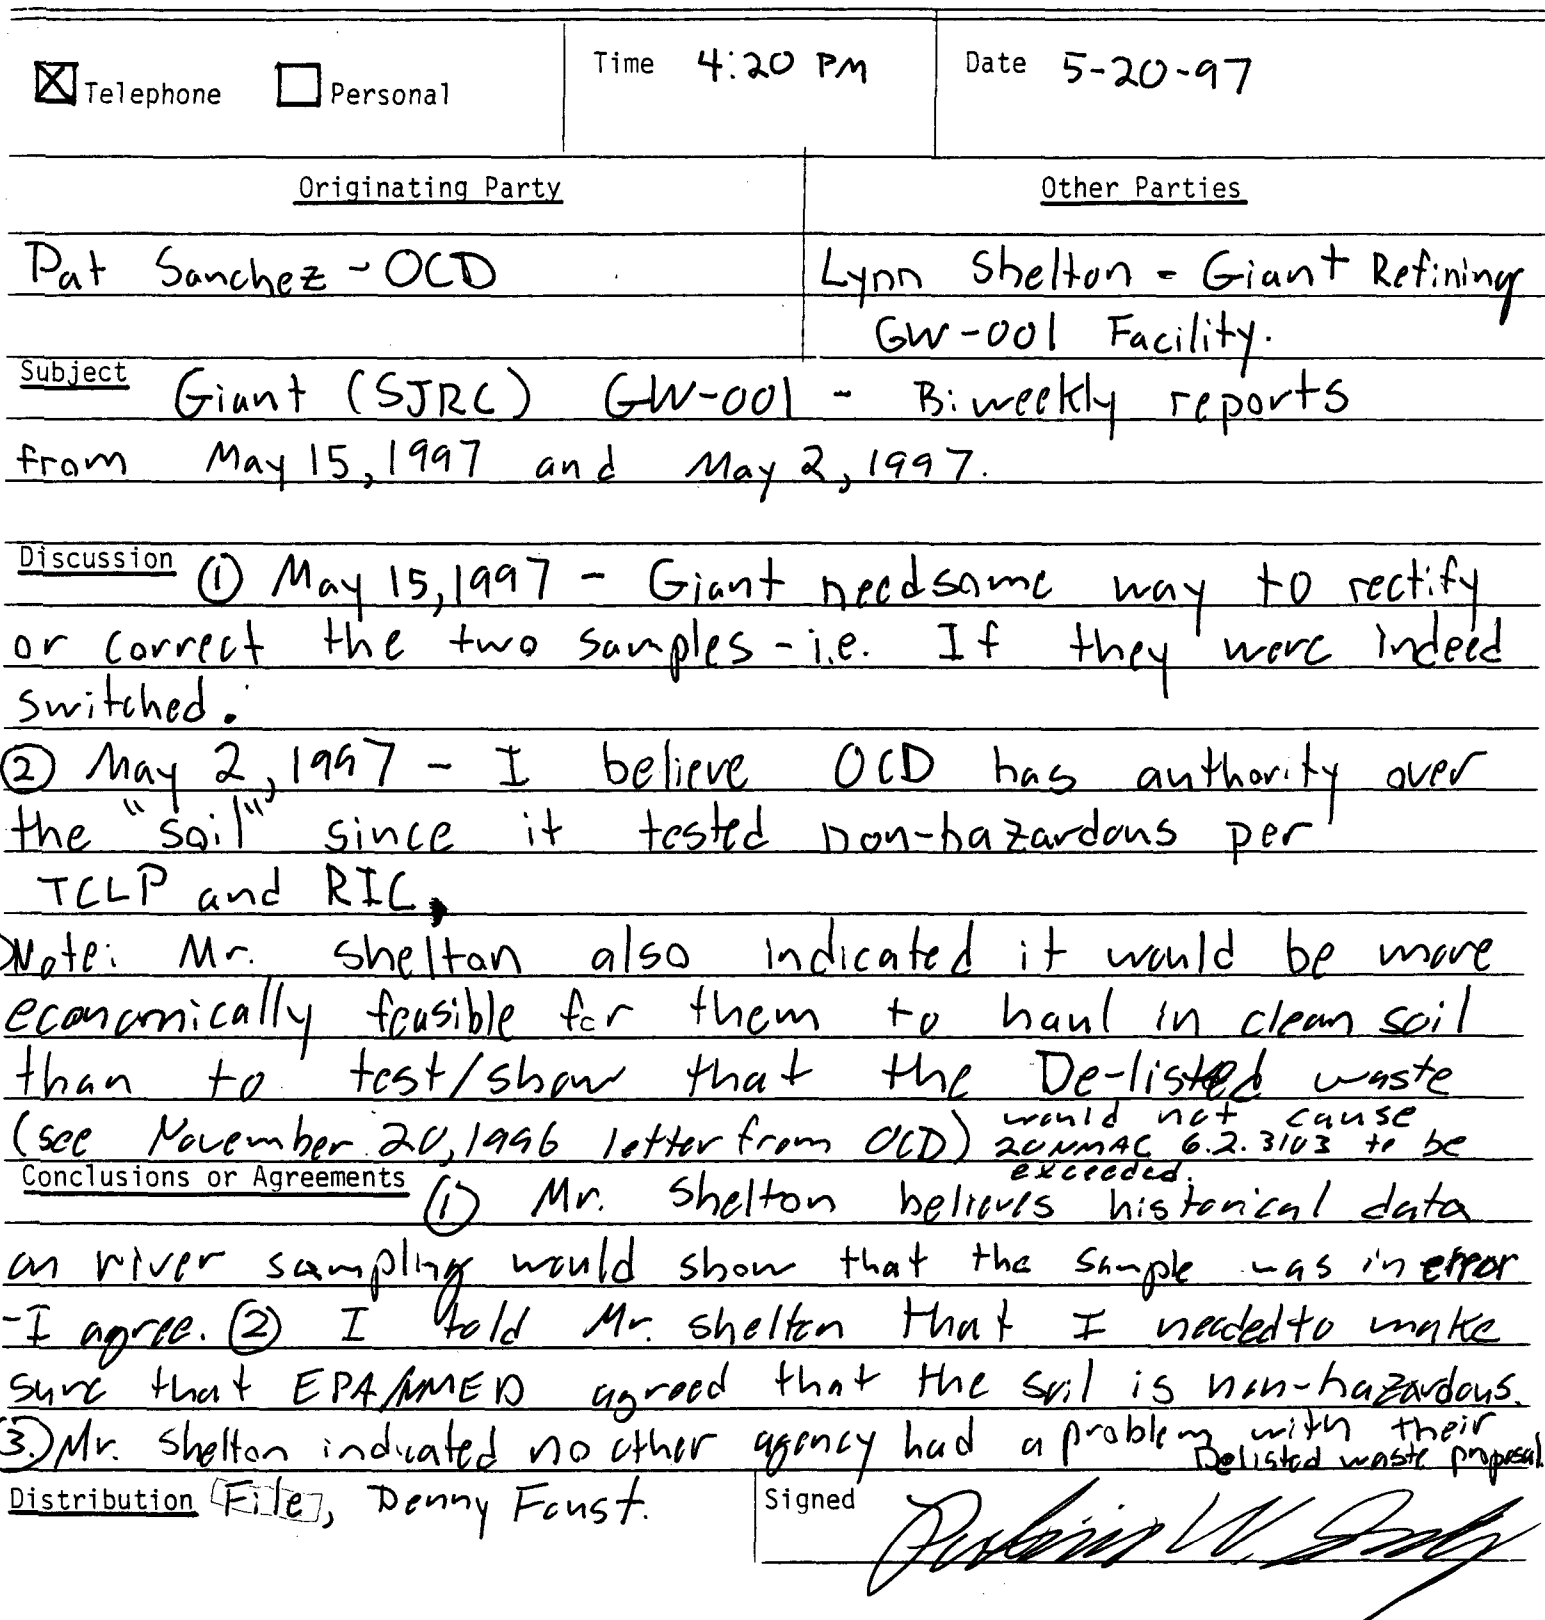 Telephone Personal Time 4:20 PM Date 5-20-97
Originating Party Other Parties
Pat Sanchez - OCD Lynn Shelton - Giant Refining
GW-001 Facility.
Subject Giant (SJRC) GW-001 - Biweekly reports
from May 15, 1997 and May 2, 1997.
Discussion ① May 15, 1997 - Giant need some way to rectify
or correct the two samples - i.e. If they were indeed
switched.
② May 2, 1997 - I believe OCD has authority over
the "soil" since it tested non-hazardous per
TCLP and RIC.
Note: Mr. Shelton also indicated it would be more
economically feasible for them to haul in clean soil
than to test/show that the De-listed waste
(see November 20, 1996 letter from OCD) would not cause
20 NMAC 6.2.3103 to be
exceeded.
Conclusions or Agreements ① Mr. Shelton believes historical data
on river sampling would show that the sample was in error
- I agree. ② I told Mr. Shelton that I needed to make
sure that EPA/NMED agreed that the soil is non-hazardous.
③. Mr. Shelton indicated no other agency had a problem with their
Delisted waste proposal.
Distribution File, Denny Foust. Signed